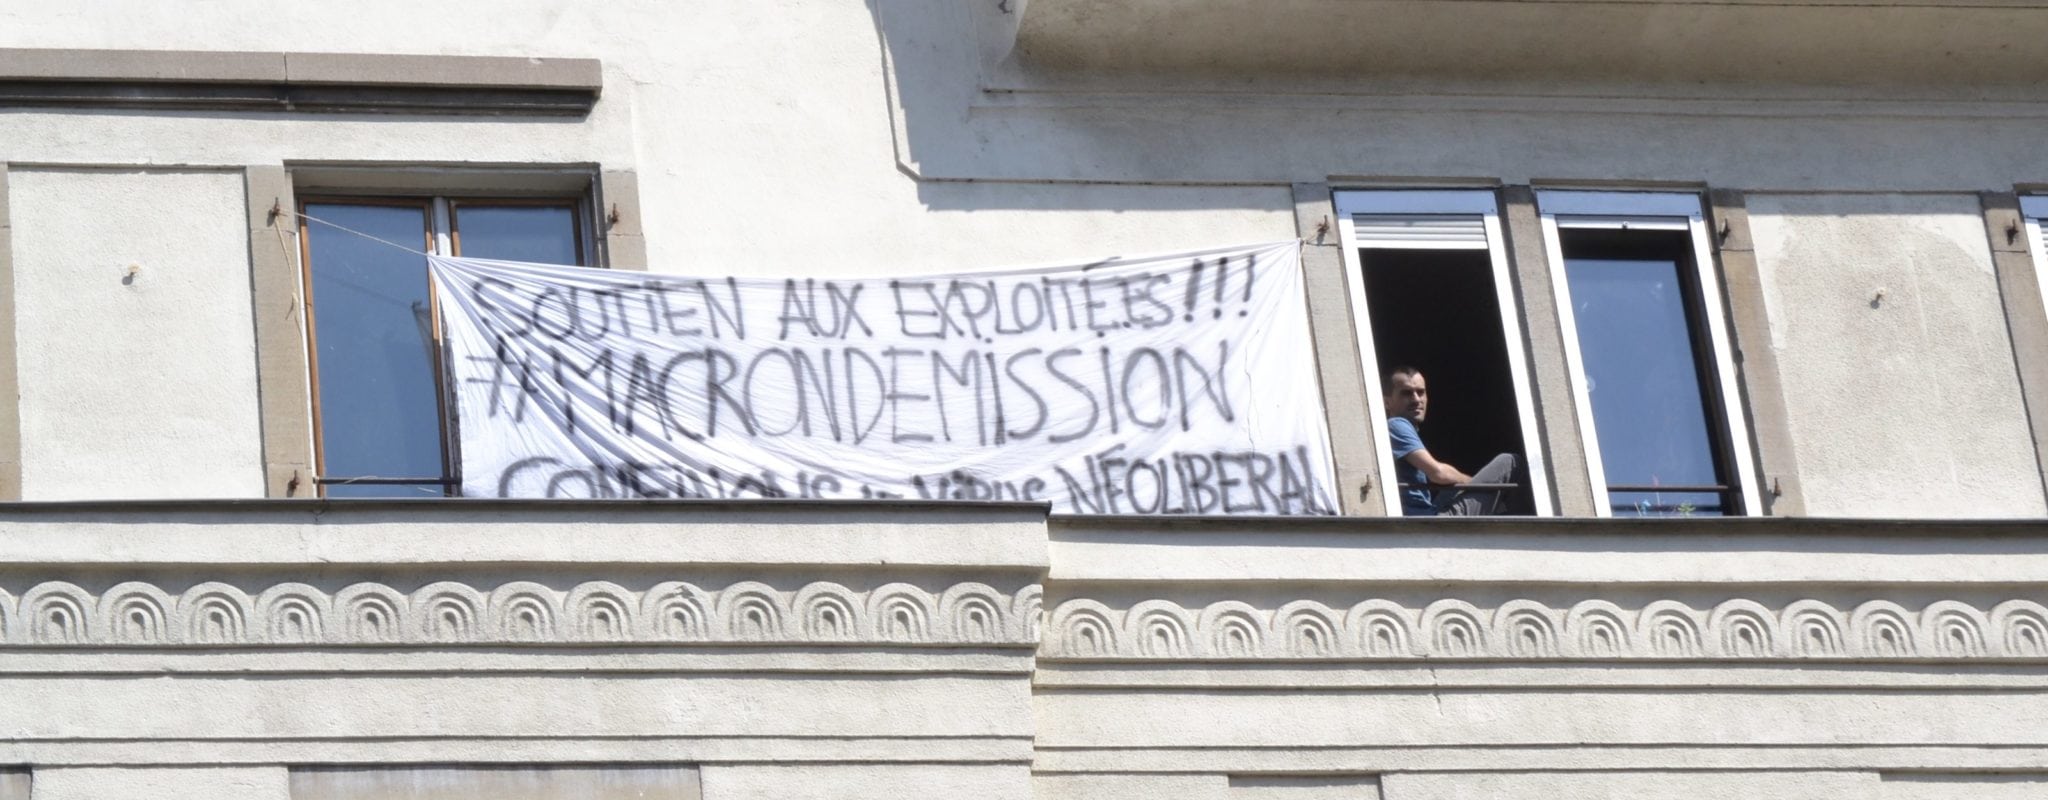 SOUTIEN AUX EXPLOITÉ.ES!!!
#MACRONDEMISSION
CONFINONS le ViRUS NÉOLIBERAL